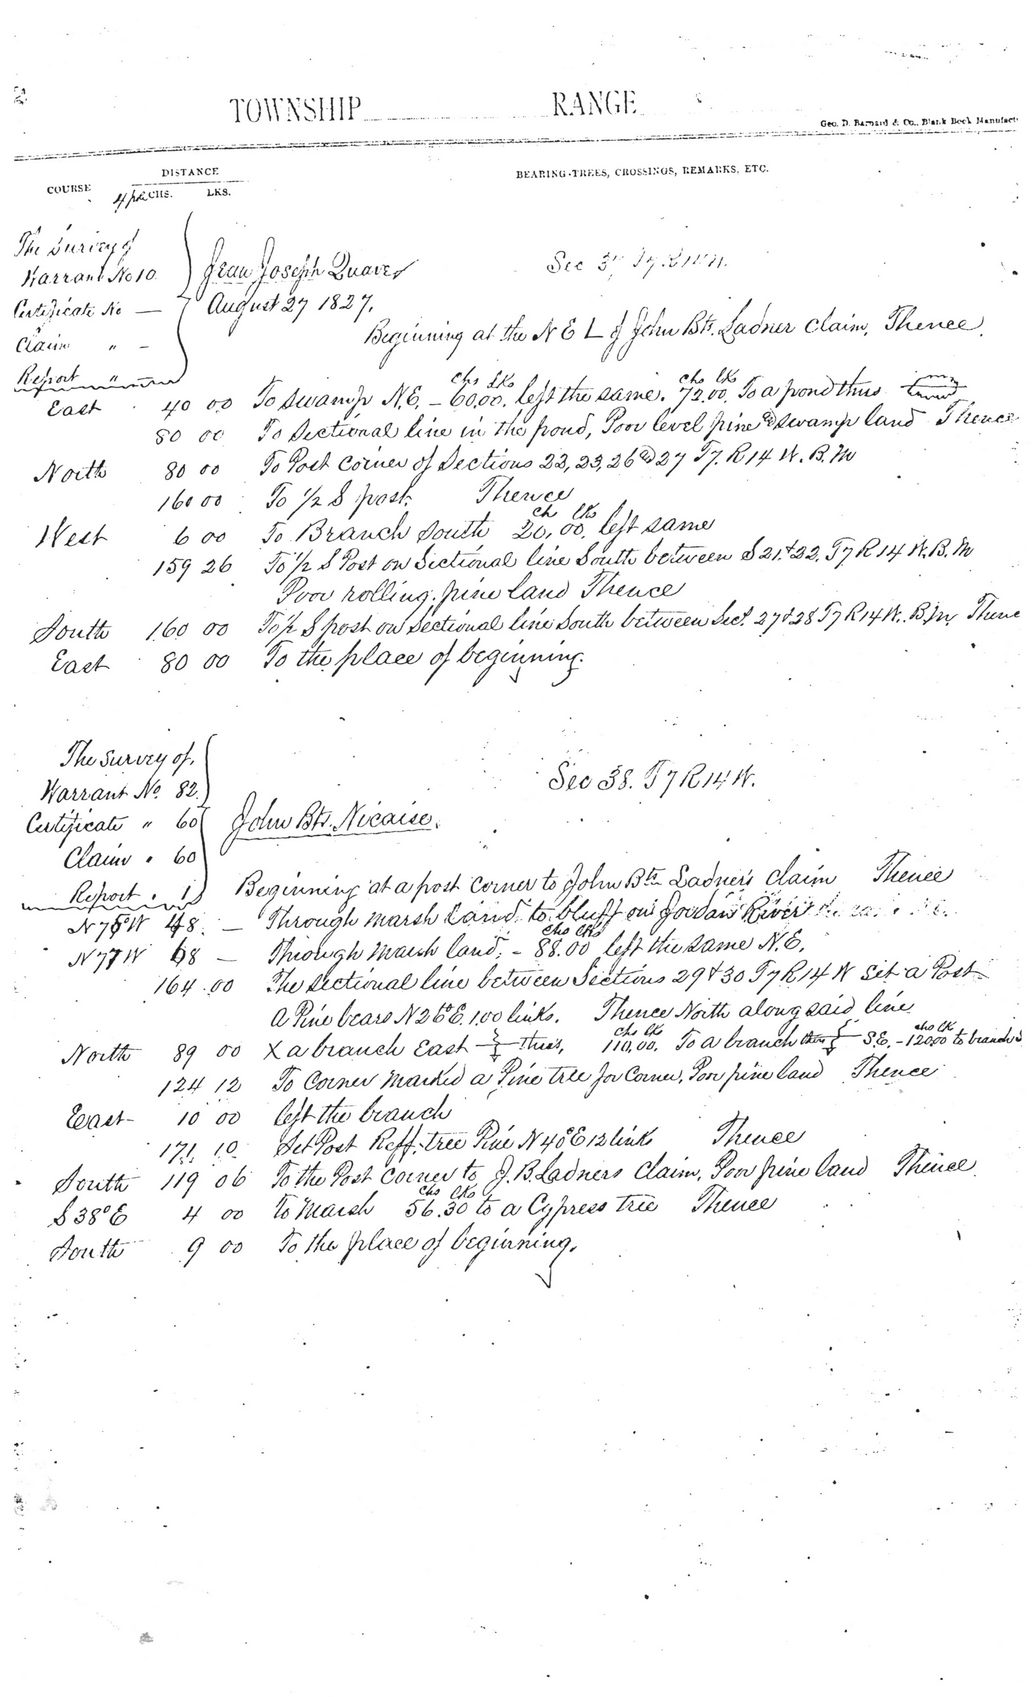 TOWNSHIP RANGE
Geo. D. Barnard & Co., Blank Book Manufact
COURSE DISTANCE BEARING-TREES, CROSSINGS, REMARKS, ETC.
CHS. LKS.
The Survey of
Warrant No 10. Jean Joseph Quaves Sec T7 R14W.
Certificate No — August 27 1827.
Claim " - Beginning at the N E L of John Bts. Ladner Claim, Thence
Report "
East 40 00 To Swamp N.E. – 60.00. left the same. 72.00. To a pond thus
chs lks chs lks
80 00 To Sectional line in the pond, Poor level pine & swamp land Thence
North 80 00 To Post Corner of Sections 22, 23, 26 & 27 T7. R14 W. B.M
160 00 To 1/2 S post. Thence
ch lks
West 6 00 To Branch South 20,00, left same
159 26 To 1/2 S Post on Sectional line South between S 21 & 22, T7 R14 W. B. M
Poor rolling pine land Thence
South 160 00 To 1/2 S post on Sectional line South between Sect. 27 & 28 T7 R14 W. B.M. Thenc
East 80 00 To the place of beginning.
The Survey of.
Warrant No. 82. Sec 38. T7 R14W.
Certificate " 60 John Bts. Nicaise.
Claim " 60
Report " 1 Beginning at a post corner to John Bts Ladner's claim Thence
W 48. — Through marsh Land to bluff on Jordan River
chs lks
N 77 W 68 — Through marsh land, - 88.00 left the same N.E.
164.00 The Sectional line between Sections 29 & 30 T7 R14 W Set a Post
A Pine bears N 26° E. 1.00 links. Thence North along said line
chs lk chs lk
North 89 00 X a branch East thus, 110,00. To a branch thus S.E. – 120.00 to branch S
124 12 To Corner marked a Pine tree for Corner, Poor pine land Thence
East 10 00 left the branch
171 10 Set Post Reff. tree Pine N 40° E 12 links Thence
South 119 06 To the Post Corner to J. B. Ladners Claim, Poor pine land Thence
chs lks
S 38° E 4 00 to Marsh 56.30 to a Cypress tree Thence
South 9 00 To the place of beginning.